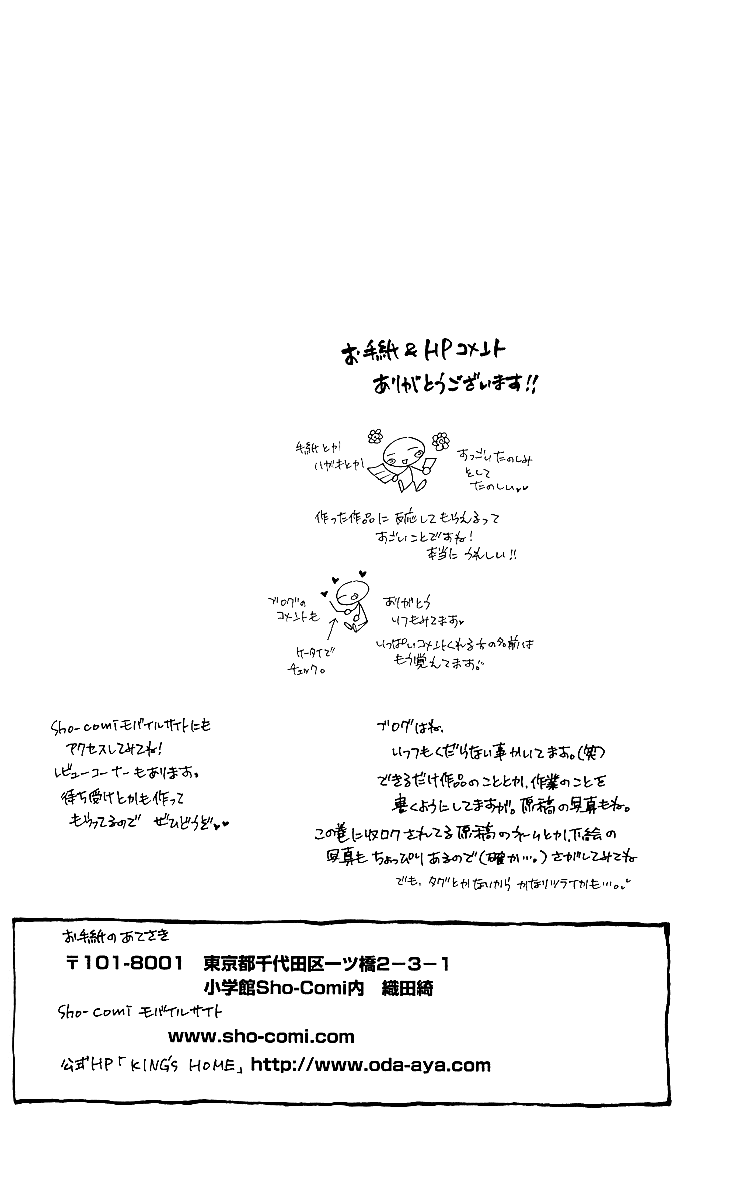 お手紙&HPコメント
ありがとうございます!!
手紙とか
ハガキとか
すっごいたのしみ
として
たのしい♥♥
作った作品に反応してもらえるって
すごいことですね!
本当にうれしい!!
ブログの
コメントも
ケータイで
チェック。
ありがとう
いつもみてます♥
いっぱいコメントくれる方の名前は
もう覚えてます。
ブログはね、
いっつもくだらない事かいてます。(笑)
できるだけ作品のこととか、作業のことを
書くようにしてますが。原稿の写真もね。
この巻に収ロクされてる原稿のネームとか、下絵の
写真もちょっぴりあるので(確か…。)さがしてみてね
でも、タグとかないからかなりツライかも…。
Sho-comiモバイルサイトにも
アクセスしてみてね!
レビューコーナーもあります。
待ち受けとかも作って
もらってるので ぜひどうぞ♥♥
お手紙のあてさき
〒101-8001 東京都千代田区一ツ橋2-3-1
小学館Sho-Comi内 織田綺
Sho-comi モバイルサイト
www.sho-comi.com
公式HP「KING'S HOME」http://www.oda-aya.com